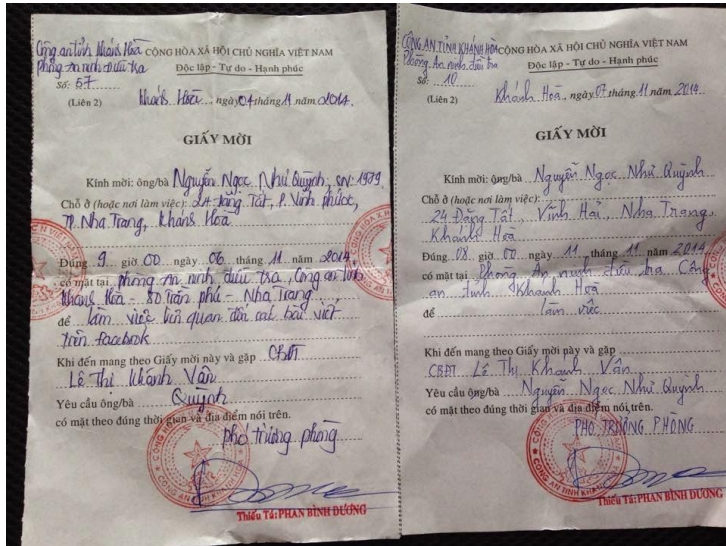 Công an tỉnh Khánh Hoà
Phòng An ninh điều tra
CỘNG HÒA XÃ HỘI CHỦ NGHĨA VIỆT NAM
Độc lập - Tự do - Hạnh phúc
Số: 57
(Liên 2)
Khánh Hoà, ngày 04 tháng 11 năm 2014.
GIẤY MỜI
Kính mời: ông/bà Nguyễn Ngọc Như Quỳnh, SN: 1979
Chỗ ở (hoặc nơi làm việc): 24 Đặng Tất, P. Vĩnh phước,
TP. Nha Trang, Khánh Hoà
Đúng 9 giờ 00 ngày 06 tháng 11 năm 2014,
có mặt tại phòng An ninh điều tra, Công an tỉnh
Khánh Hoà - 80 Trần phú - Nha Trang
để làm việc liên quan đến các bài viết
trên facebook
Khi đến mang theo Giấy mời này và gặp CBĐT
Lê Thị Khánh Vân
Yêu cầu ông/bà Quỳnh
có mặt theo đúng thời gian và địa điểm nói trên.
phó trưởng phòng
CÔNG AN TỈNH KHÁNH HOÀ
Thiếu Tá: PHAN BÌNH DƯƠNG
CÔNG AN TỈNH KHÁNH HÒA
Phòng An ninh điều tra
CỘNG HÒA XÃ HỘI CHỦ NGHĨA VIỆT NAM
Độc lập - Tự do - Hạnh phúc
Số: 10
(Liên 2)
Khánh Hoà, ngày 07 tháng 11 năm 2014
GIẤY MỜI
Kính mời: ông/bà Nguyễn Ngọc Như Quỳnh
Chỗ ở (hoặc nơi làm việc):
24 Đặng Tất, Vĩnh Hải, Nha Trang,
Khánh Hoà
Đúng 08 giờ 00 ngày 11 tháng 11 năm 2014
có mặt tại Phòng An ninh điều tra Công
an tỉnh Khánh Hoà
để làm việc
Khi đến mang theo Giấy mời này và gặp
CBĐT Lê Thị Khánh Vân
Yêu cầu ông/bà Nguyễn Ngọc Như Quỳnh
có mặt theo đúng thời gian và địa điểm nói trên.
PHÓ TRƯỞNG PHÒNG
Thiếu Tá: PHAN BÌNH DƯƠNG